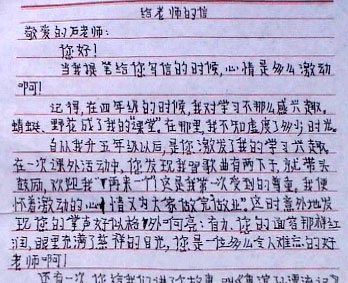 给老师的信
敬爱的石老师:
您好!
当我提笔给您写信的时候,心情是多么激动
啊!
记得,在四年级的时候,我对学习不那么感兴趣。
蜻蜓、野花成了我的"课堂"。在那里,我不知虚度了多少时光。
自从我升五年级以后,是您激发了我的学习兴趣。
在一次课外活动中,您发现我唱歌曲有两下子,就带头
鼓励,欢迎我"再来一个"这是我第一次受到的尊重,我便
怀着激动的心情又为大家做完做业"这时意外地发
现您的掌声好似格外响亮;有力,您的面容那样红
润,眼里充满了慈祥的目光,您是一位多么令人难忘的好
老师啊!
还有一次,您给我们讲了个故事,叫《鲁滨的漂流记》